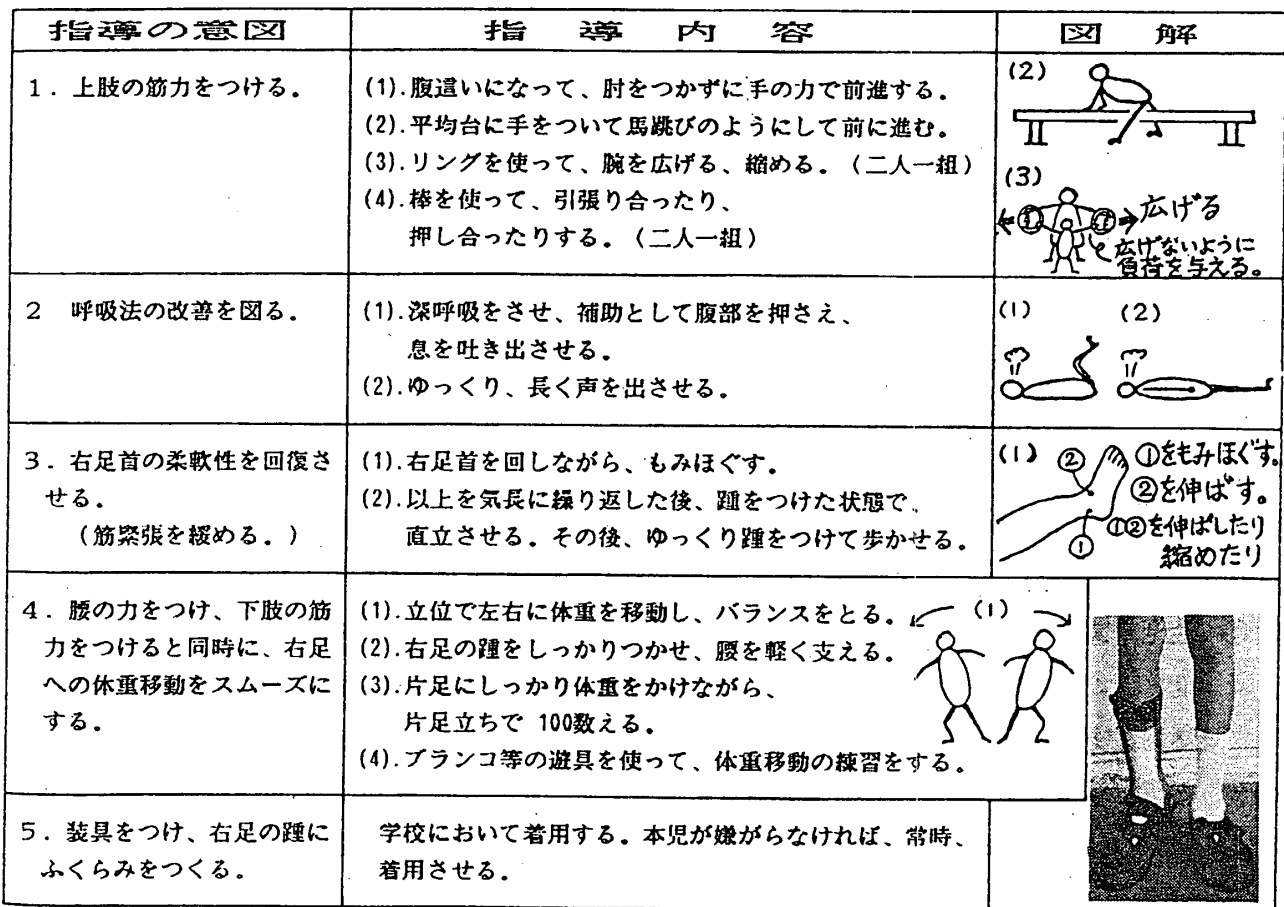 指導の意図
指 導 内 容
図 解
1．上肢の筋力をつける。
(1).腹這いになって、肘をつかずに手の力で前進する。
(2).平均台に手をついて馬跳びのようにして前に進む。
(3).リングを使って、腕を広げる、縮める。（二人一組）
(4).棒を使って、引張り合ったり、
押し合ったりする。（二人一組）
(2)
(3)
広げる
広げないように
負荷を与える。
2 呼吸法の改善を図る。
(1).深呼吸をさせ、補助として腹部を押さえ、
息を吐き出させる。
(2).ゆっくり、長く声を出させる。
(1) (2)
3．右足首の柔軟性を回復さ
せる。
（筋緊張を緩める。）
(1).右足首を回しながら、もみほぐす。
(2).以上を気長に繰り返した後、踵をつけた状態で、
直立させる。その後、ゆっくり踵をつけて歩かせる。
(1) ② ①をもみほぐす。
②を伸ばす。
①②を伸ばしたり
縮めたり
①
4．腰の力をつけ、下肢の筋
力をつけると同時に、右足
への体重移動をスムーズに
する。
(1).立位で左右に体重を移動し、バランスをとる。
(2).右足の踵をしっかりつかせ、腰を軽く支える。
(3).片足にしっかり体重をかけながら、
片足立ちで 100数える。
(4).ブランコ等の遊具を使って、体重移動の練習をする。
(1)
5．装具をつけ、右足の踵に
ふくらみをつくる。
学校において着用する。本児が嫌がらなければ、常時、
着用させる。